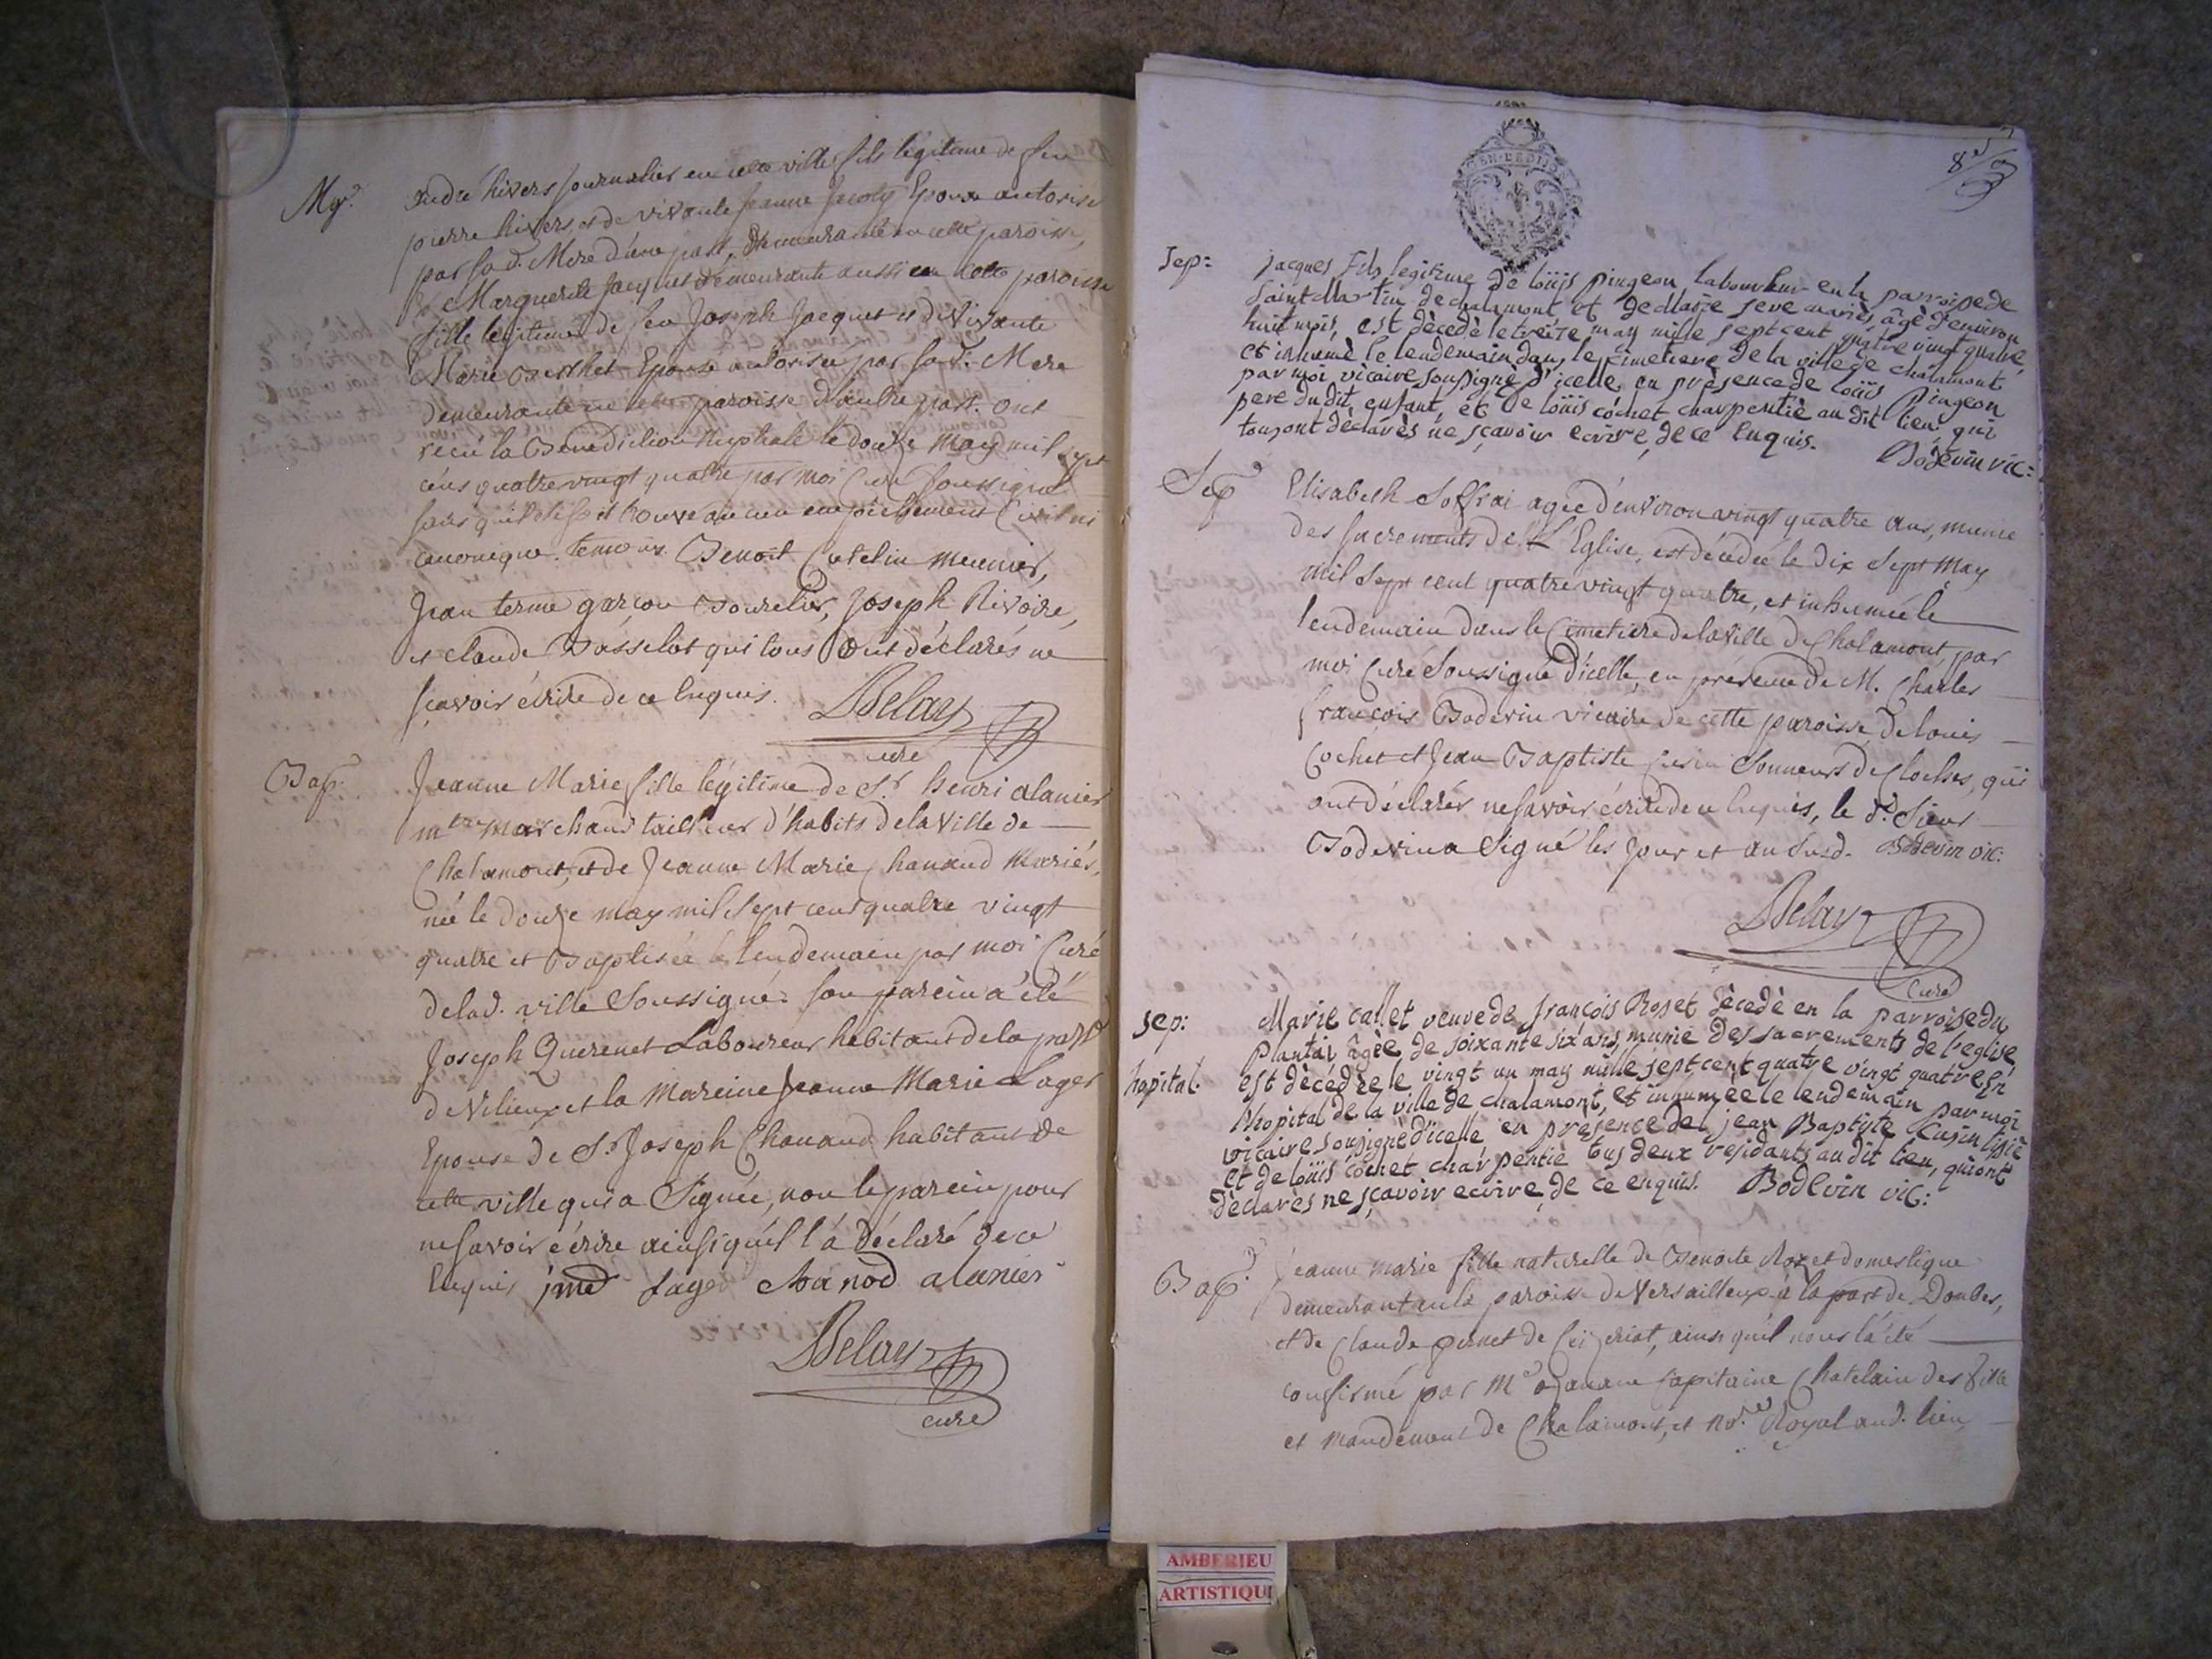 Mge.
André hivers journalier en cette ville fils légitime de feu
pierre hivers, et de vivante jeanne jacoty Epoux autorisé
par sa d. Mere d'une part, demeurante en cette paroisse,
& Marguerite jacquet demeurante aussi en cette paroisse
fille legitime de feu Joseph Jacquet et de vivante
Marie Berthet Epouse autorisée par sa d. Mere
demeurante en cette paroisse d'autre part. ont
recu la Benediction Nuptiale le douze may mil sept
cens quatre vingt quatre par moi Curé soussigné
sans qu'il se soit trouvé aucun empêchement Civil ni
canonique. temoins Benoit Catelin meunier,
Jean terme garçon Bourelier, Joseph Rivoire,
et claude Vasselot qui tous ont déclarés ne
sçavoir écrire de ce Enquis. Delay
curé
Bap.
Jeanne Marie fille légitime de Sr. henri alanier
mtre marchand tailleur d'habits de la Ville de
Chalamont, et de Jeanne Marie Chanaud mariés,
née le douze may mil sept cent quatre vingt
quatre et Baptisée le lendemain par moi Curé
de lad. ville Soussigné. son parein a été
Joseph Querenet Laboureur habitant de la parsse
de Vilieux et la Mareine Jeanne Marie Lager
Epouse de Sr. Joseph Chanaud habitant de
cette ville qui a Signée, non le parein pour
ne savoir écrire ainsi qu'il l'a déclaré de ce
Enquis jme Lager Chanod alanier
Delay
curé
8e
GEN. DE DIJON
Sep:
jacques Fils legitime de loüis pingeon laboureur en la parroisse de
saint Martin de chalamont et de Marie seve mariés âgé d'environ
huit mois, est dècèdè le treize may mille sept cent quatre vingt quatre,
et inhumè le lendemain dans le cimetiere de la ville de chalamont
par moi vicaire soussignè d'icelle, en prèsence de loüis Pingeon
pere du dit enfant, et de loüis cochet charpentiè au dit lieu, qui
tous ont dèclarès ne sçavoir ecrire, de ce Enquis. Bodevin vic:
Sep
Elisabeth Soffrai agée d'environ vingt quatre ans, munie
des sacrements de L'Eglise, est décédée le dix sept May
mil sept cent quatre vingt quatre, et inhumée le
lendemain dans le Cimetiere de la Ville de Chalamont, par
moi Curé Soussigné d'icelle, en présence de M. Charles
françois Bodevin vicaire de cette paroisse, de louis
Cochet et Jean Baptiste Cusin Sonneurs de Cloches, qui
ont déclarés ne savoir écrire de ce Enquis, le d. Sieur
Bodevin a Signé les jour et an susd. Bodevin vic:
Delay
Curé
sep:
hopital.
Marie callet veuve de françois Roset dècedè en la parroisse du
Plantai, âgèe de soixante six ans, munie des sacrements de l'eglise
est dècèdèe le vingt un may mille sept cent quatre vingt quatre, En
l'hopital de la ville de chalamont, et inhumèe le lendemain par moi
vicaire soussignè d'icelle en presence de jean Baptiste Cusin
et de loüis cochet charpentiè tous deux residants au dit lieu, qui ont
dèclarès ne sçavoir ecrire, de ce enquis. Bodevin vic:
Bap.
jeanne marie fille naturelle de Benoite Roset domestique
demeurant en la paroisse de Versailleux à la part de Dombes,
et de Claude perret de Ceizeriat, ainsi qu'il nous l'a été
confirmé par Me capitaine Chatelain des Ville
et Mandement de Chalamont, et Nore. Royal aud. lieu,
AMBERIEU
ARTISTIQU